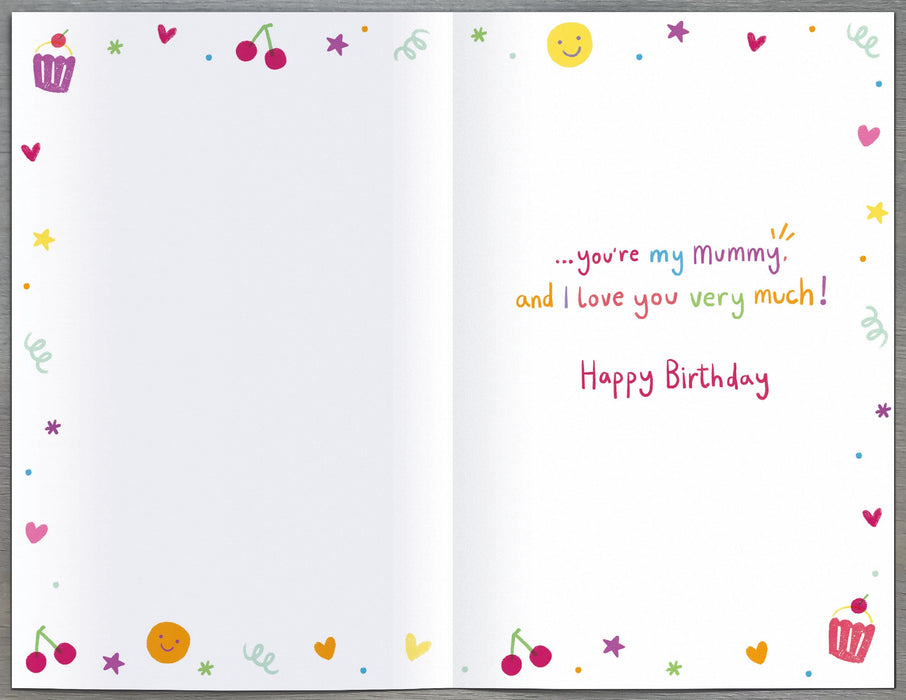 ...you're my Mummy,
and I love you very much!
Happy Birthday